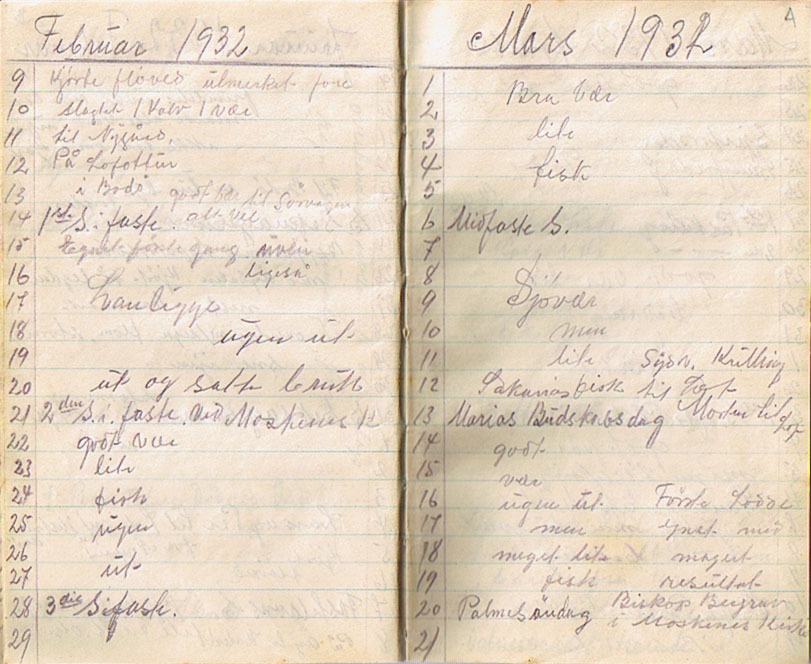 Februar 1932
9 Kjørte flöved ulmerket före
10 slagtet 1 Kalv 1 vær
11 til Nygård,
12 På Lofottur
13 i Bodö godt vær til Sörvågen
14 1ste S. i faste. alt vel
15 første gang
16 ligeså
17 Landligge
18 ugen ut
19
20 ut og satte bruk
21 2den S. i. faste. ved Moskenes K
22 godt vær
23 lite
24 fisk
25 ugen
26
27 ut
28 3die S i faste.
29
Mars 1932
4
1
2 Bra Vær
3 lite
4 fisk
5
6 Midfaste S.
7
8
9 Sjövær
10 men
11 lite
12 Sakarias fisk til
13 Marias Budskabsdag Morten til Lof
14 godt
15 vær
16 ugen ut Förste Lodde
17 men Ynet med
18 meget lite maget
19 fisk resultat
20 Palmesöndag Biskop Berggrav
21 i Moskenes Kirke